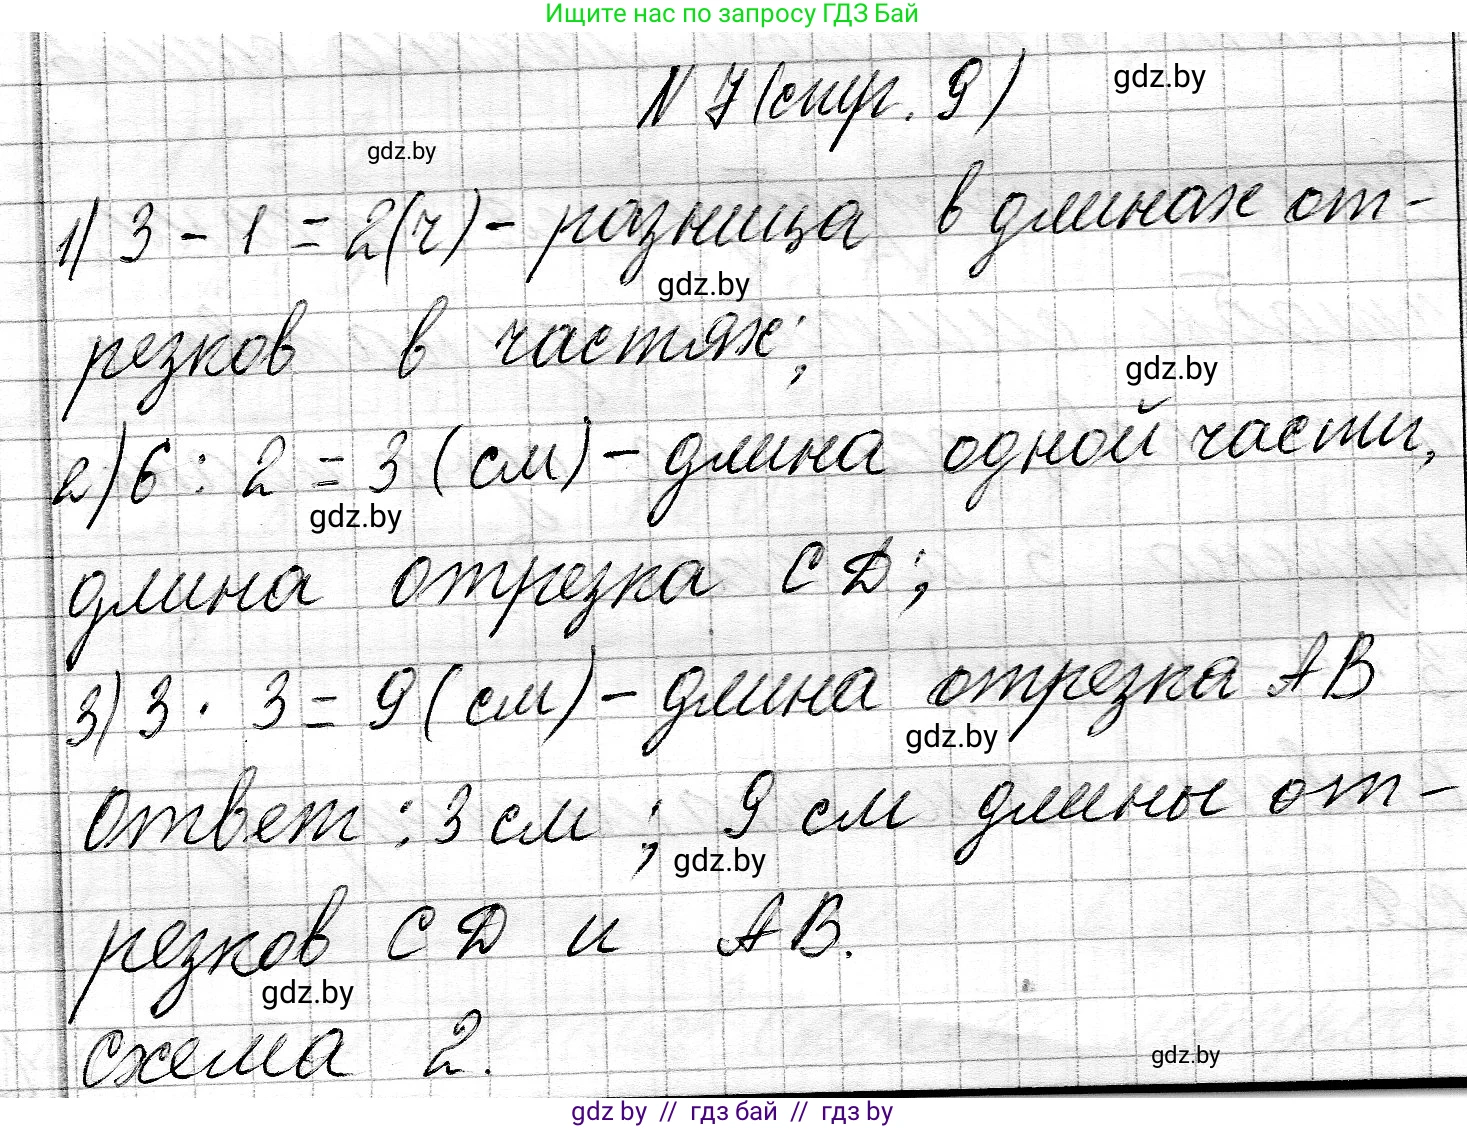 Ищите нас по запросу ГДЗ Бай
N 7 (стр. 9)
gdz.by
gdz.by
1) 3 - 1 = 2 (ч) - разница в длинах от-
gdz.by
резков в частях;
gdz.by
2) 6 : 2 = 3 (см) - длина одной части,
gdz.by
длина отрезка CD;
3) 3 · 3 = 9 (см) - длина отрезка AB
gdz.by
Ответ: 3 см; 9 см длины от-
gdz.by
резков CD и AB.
gdz.by
схема 2.
gdz.by
gdz by // гдз бай // гдз by